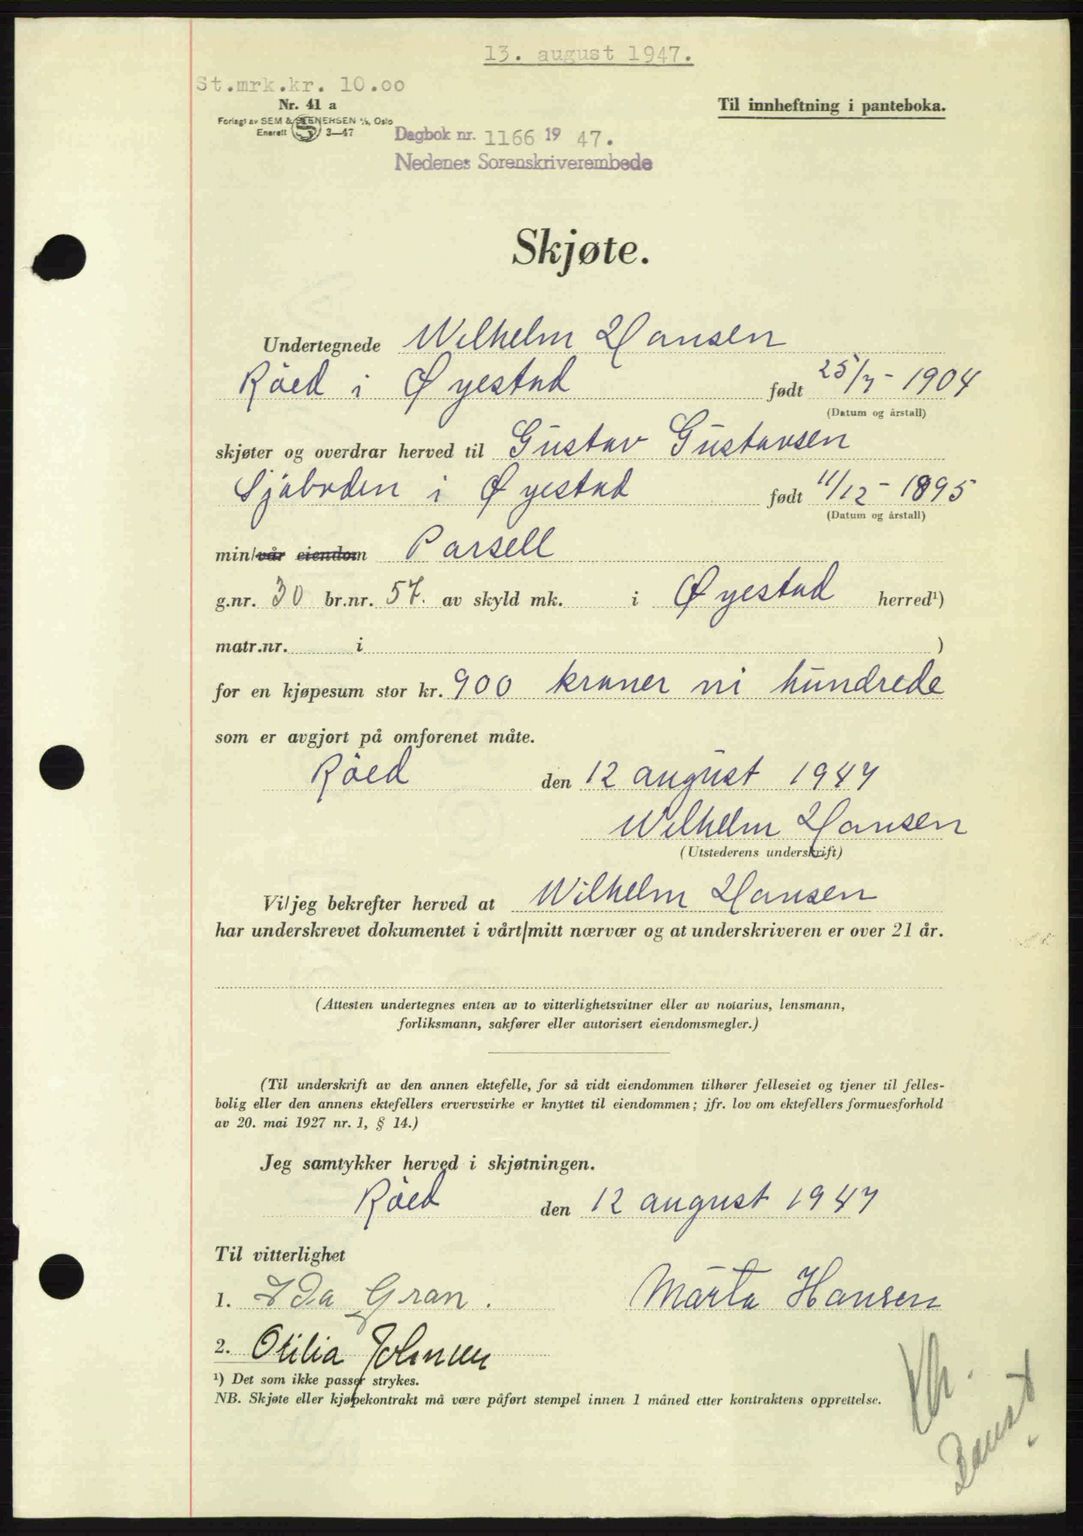 13. august 1947.
St.mrk.kr. 10.00
Nr. 41 a
Til innheftning i panteboka.
Forlagt av SEM & STENERSEN A/S, Oslo
Enerett 3—47
Dagbok nr. 1166 19 47.
Nedenes Sorenskriverembede
Skjøte.
Undertegnede Wilhelm Hansen
Røed i Øyestad født 25/7 - 1904
(Datum og årstall)
skjøter og overdrar herved til Gustav Gustavsen
Sjåboden i Øyestad født 11/12 - 1895
(Datum og årstall)
min/vår eiendom Parsell
g.nr. 30 br.nr. 57. av skyld mk. i Øyestad herred¹)
matr.nr. i )
for en kjøpesum stor kr. 900 kroner ni hundrede
som er avgjort på omforenet måte.
Røed den 12 august 1947
Wilhelm Hansen
(Utstederens underskrift)
Vi/jeg bekrefter herved at Wilhelm Hansen
har underskrevet dokumentet i vårt/mitt nærvær og at underskriveren er over 21 år.
(Attesten undertegnes enten av to vitterlighetsvitner eller av notarius, lensmann,
forliksmann, sakfører eller autorisert eiendomsmegler.)
(Til underskrift av den annen ektefelle, for så vidt eiendommen tilhører felleseiet og tjener til felles-
bolig eller den annens ektefellers ervervsvirke er knyttet til eiendommen; jfr. lov om ektefellers formuesforhold
av 20. mai 1927 nr. 1, § 14.)
Jeg samtykker herved i skjøtningen.
Røed den 12 august 1947
Til vitterlighet
1. Ida Gran. Märta Hansen
2. Otilia Johnsen
¹) Det som ikke passer strykes.
NB. Skjøte eller kjøpekontrakt må være påført stempel innen 1 måned etter kontraktens opprettelse.